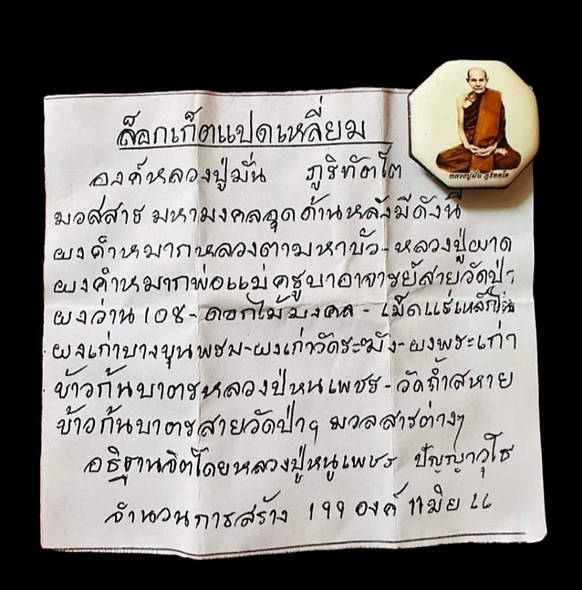 ล็อกเก็ตแปดเหลี่ยม
องค์หลวงปู่มั่น ภูริทัตโต
มวลสาร มหามงคลอุดด้านหลังมีดังนี้
ผงคำหมากหลวงตามหาบัว-หลวงปู่ผาด
ผงคำหมากพ่อแม่ครูบาอาจารย์สายวัดป่า
ผงว่าน 108-ดอกไม้มงคล-เม็ดแร่เหล็ก
ผงเก่าบางขุนพรม-ผงเก่าวัดระฆัง-ผงพระเก่า
ข้าวก้นบาตรหลวงปู่หนูเพชร-วัดถ้ำสหาย
ข้าวก้นบาตรสายวัดป่าฯ มวลสารต่างๆ
อธิฐานจิตโดยหลวงปู่หนูเพชร ปัญญาวุโธ
จำนวนการสร้าง 199 องค์ 11 มิย 66
หลวงปู่มั่น ภูริทตโต